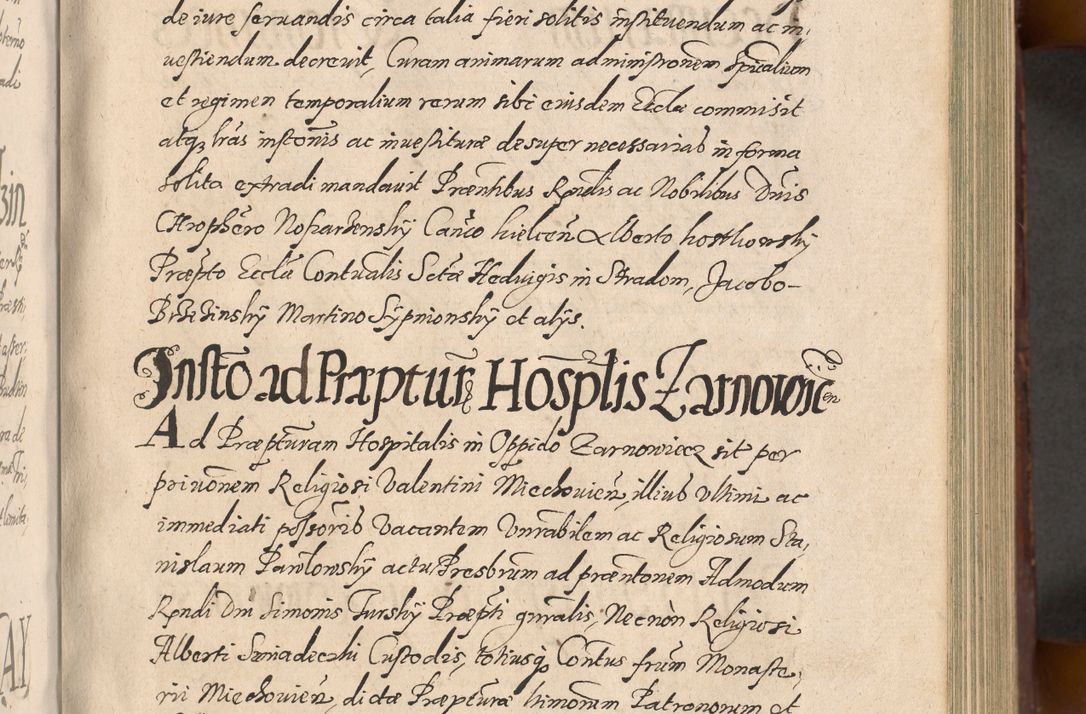 de iure seruandis circa talia fieri solitis instituendum ac in,
uestiendum decreuit, Curam animarum administronem Spiralium
et regimen temporalium rerum sibi eiusdem Ecclæ commisit
atq, lras instonis ac inuestituræ desuper necessarias in forma
solita extradi mandauit Præntibus Rndis ac Nobilibus Dnis
Chrophero Canco kielcen Alberto kostkowsky
Præpto Ecclæ Contualis Sctæ Heduigis in Stradom, Jacobo
Brzezinsky Martino et alijs.
Insto ad Præpturæ Hosplis Zarnowicen
Ad Præpturam Hospitalis in Oppido Zarnowiecz sit per
priuonem Religiosi Valentini Miechouien, illius vltimi ac
immediati possoris vacantem Vnrabilem ac Religiosum Sta,
nislaum Pawlowsky actu Presbrum ad præntonem Admodum
Rndi Dni Simonis Tursky Præpti gnralis, Necnon Religiosi
Alberti Sniadeczki Custodis, totiusq Contus frum Monaste,
rii Miechouien, dictæ Præpturæ ltimorum Patronorum et